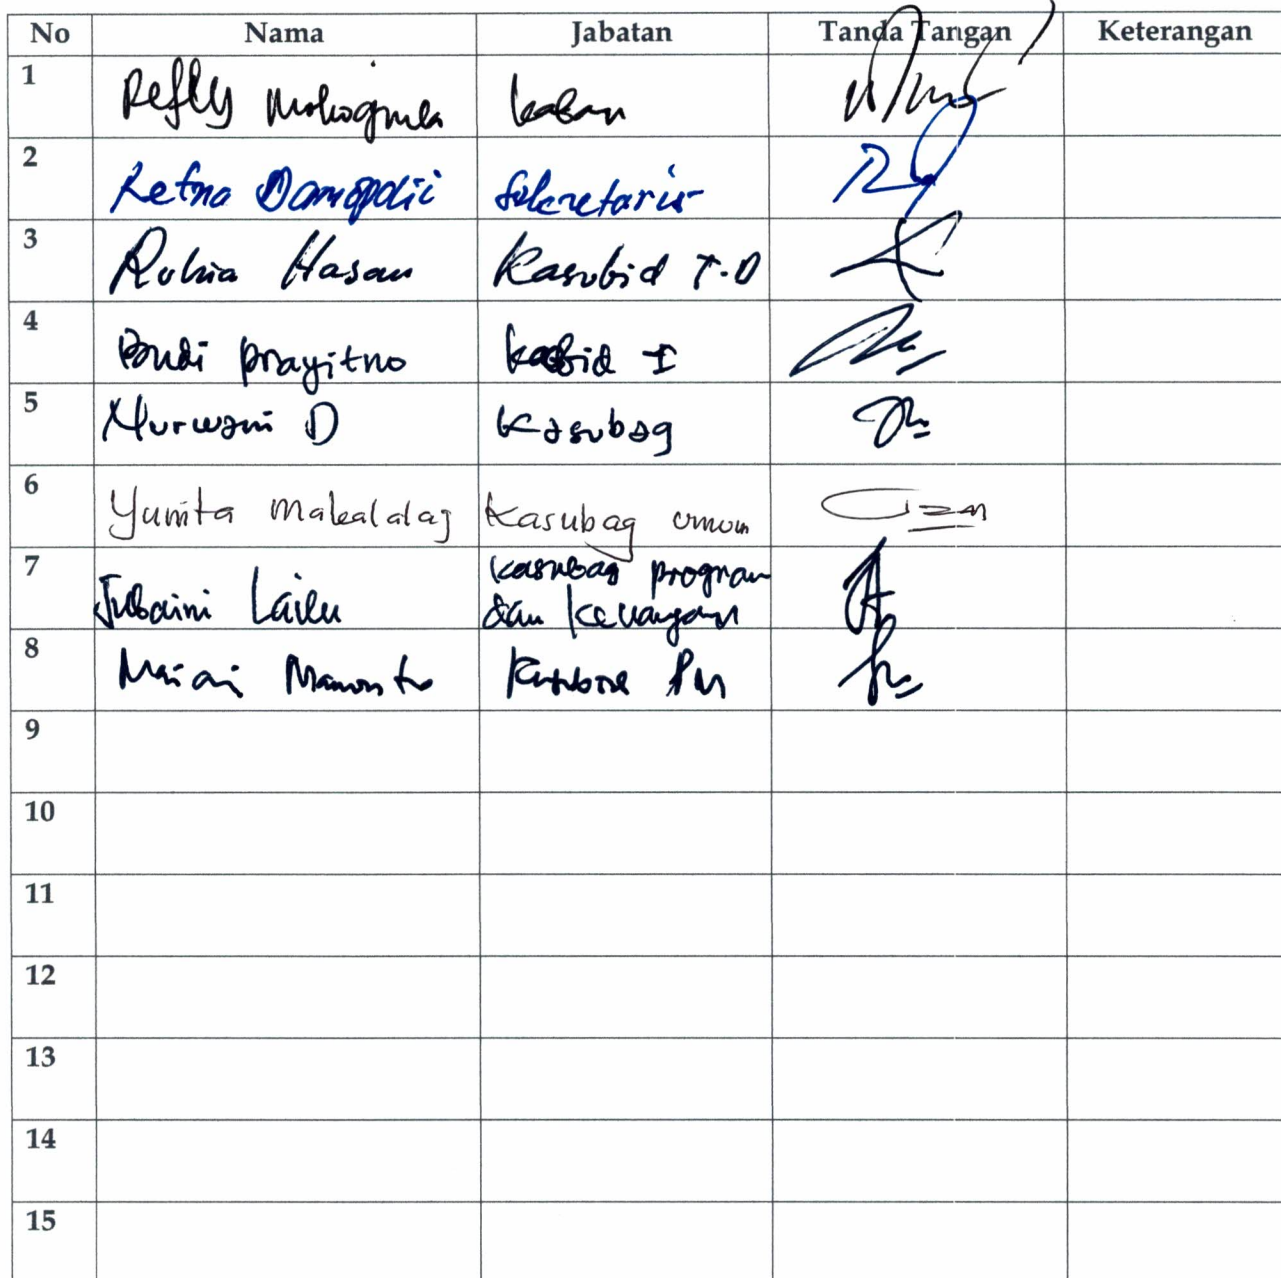 No Nama Jabatan Tanda Tangan Keterangan
1 Refly Mokoginta kaban
2 Retno Damopolii Sekretaris
3 Rukia Hasan Kasubid T.D
4 prayitno kabid I
5 Nurwani D Kasubag
6 Yunita Makalalag Kasubag umum
7 Jubaini Kasubag program
dan Keuangan
8 Mamonto
9
10
11
12
13
14
15